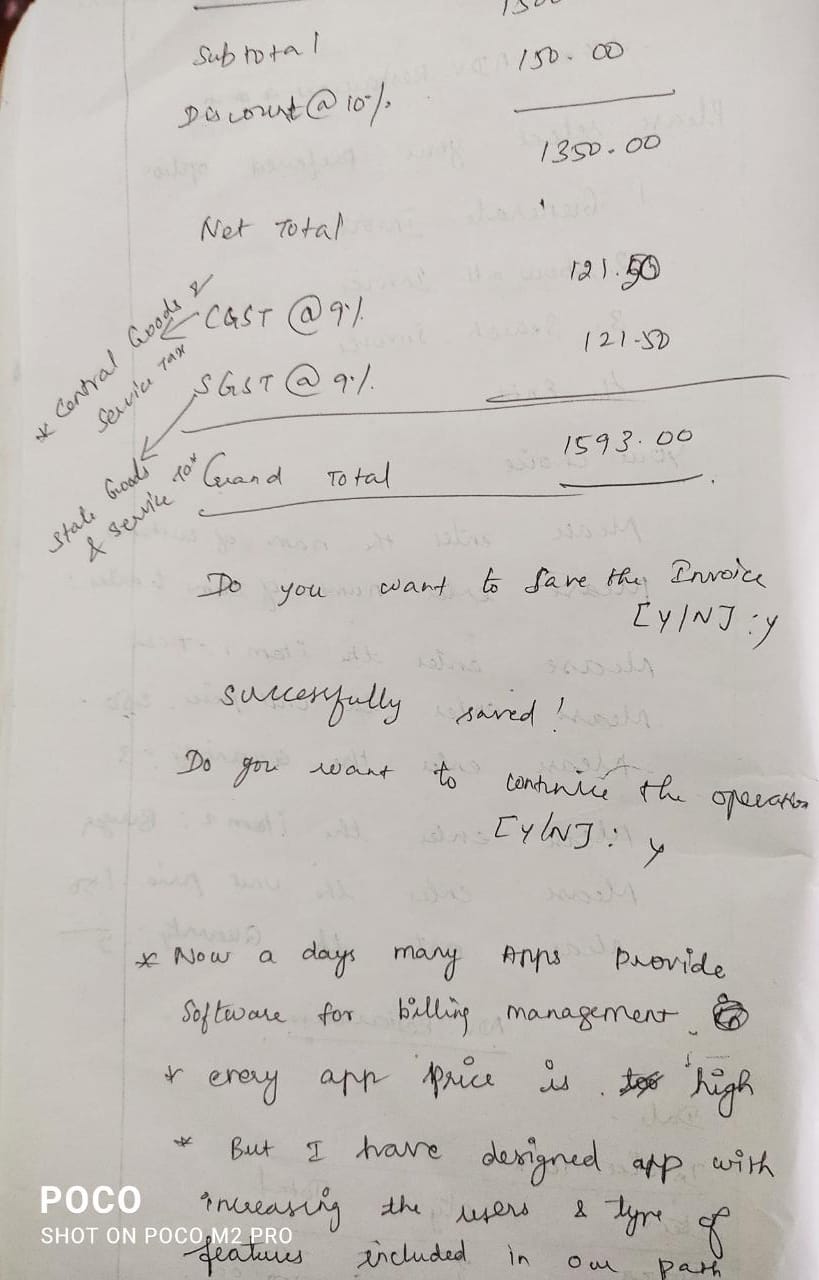 Subtotal
Discount @ 10%. 150.00
1350.00
Net Total
* Central Goods &
Service Tax
CGST @ 9% 121.50
SGST @ 9%. 121-50
State Goods
& Service Tax
Grand Total 1593.00
Do you want to save the Invoice
[Y/N] : y
Successfully saved!
Do you want to continue the operation
[Y/N] : y
* Now a days many Apps Provide
Software for billing management.
* every app price is high
* But I have designed app with
increasing the users & type of
features included in our path
POCO
SHOT ON POCO M2 PRO